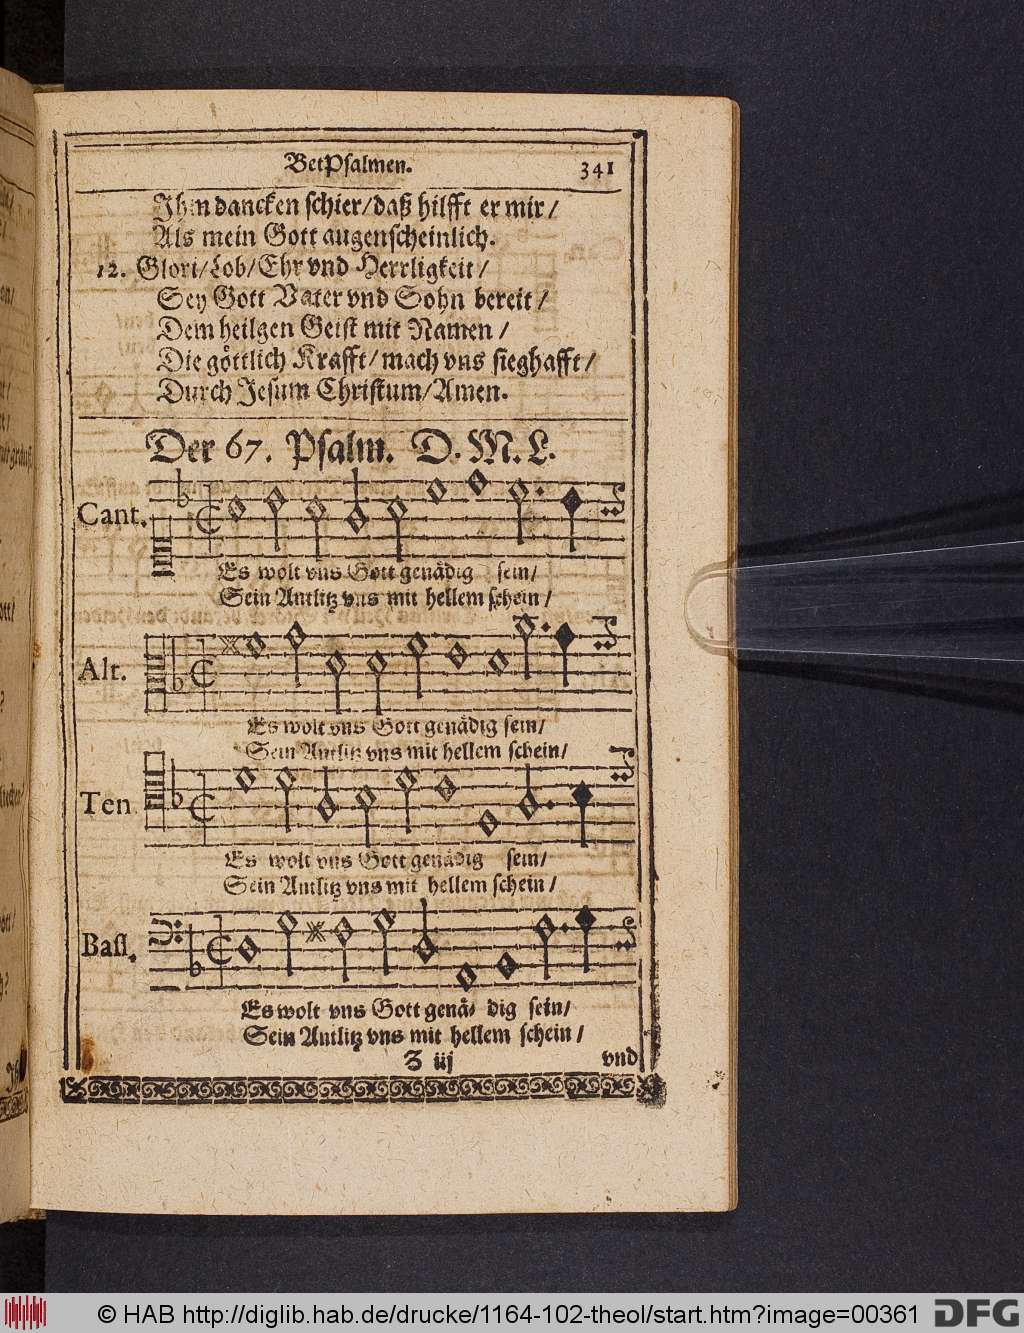 BetPsalmen. 341
Ihm dancken schier/ daß hilfft er mir/
Als mein Gott augenscheinlich.
12. Glori/ Lob/ Ehr vnd Herrligkeit/
Sey Gott Vater vnd Sohn bereit/
Dem heilgen Geist mit Namen/
Die göttlich Krafft/ mach vns sieghafft/
Durch Jesum Christum/ Amen.
Der 67. Psalm. D. M. L.
Cant.
Es wolt vns Gott genädig sein/
Sein Antlitz vns mit hellem schein/
Alt.
Es wolt vns Gott genädig sein/
Sein Antlitz vns mit hellem schein/
Ten
Es wolt vns Gott genädig sein/
Sein Antlitz vns mit hellem schein/
Bass.
Es wolt vns Gott genä/ dig sein/
Sein Antlitz vns mit hellem schein/
Z iij vnd
© HAB http://diglib.hab.de/drucke/1164-102-theol/start.htm?image=00361 DFG